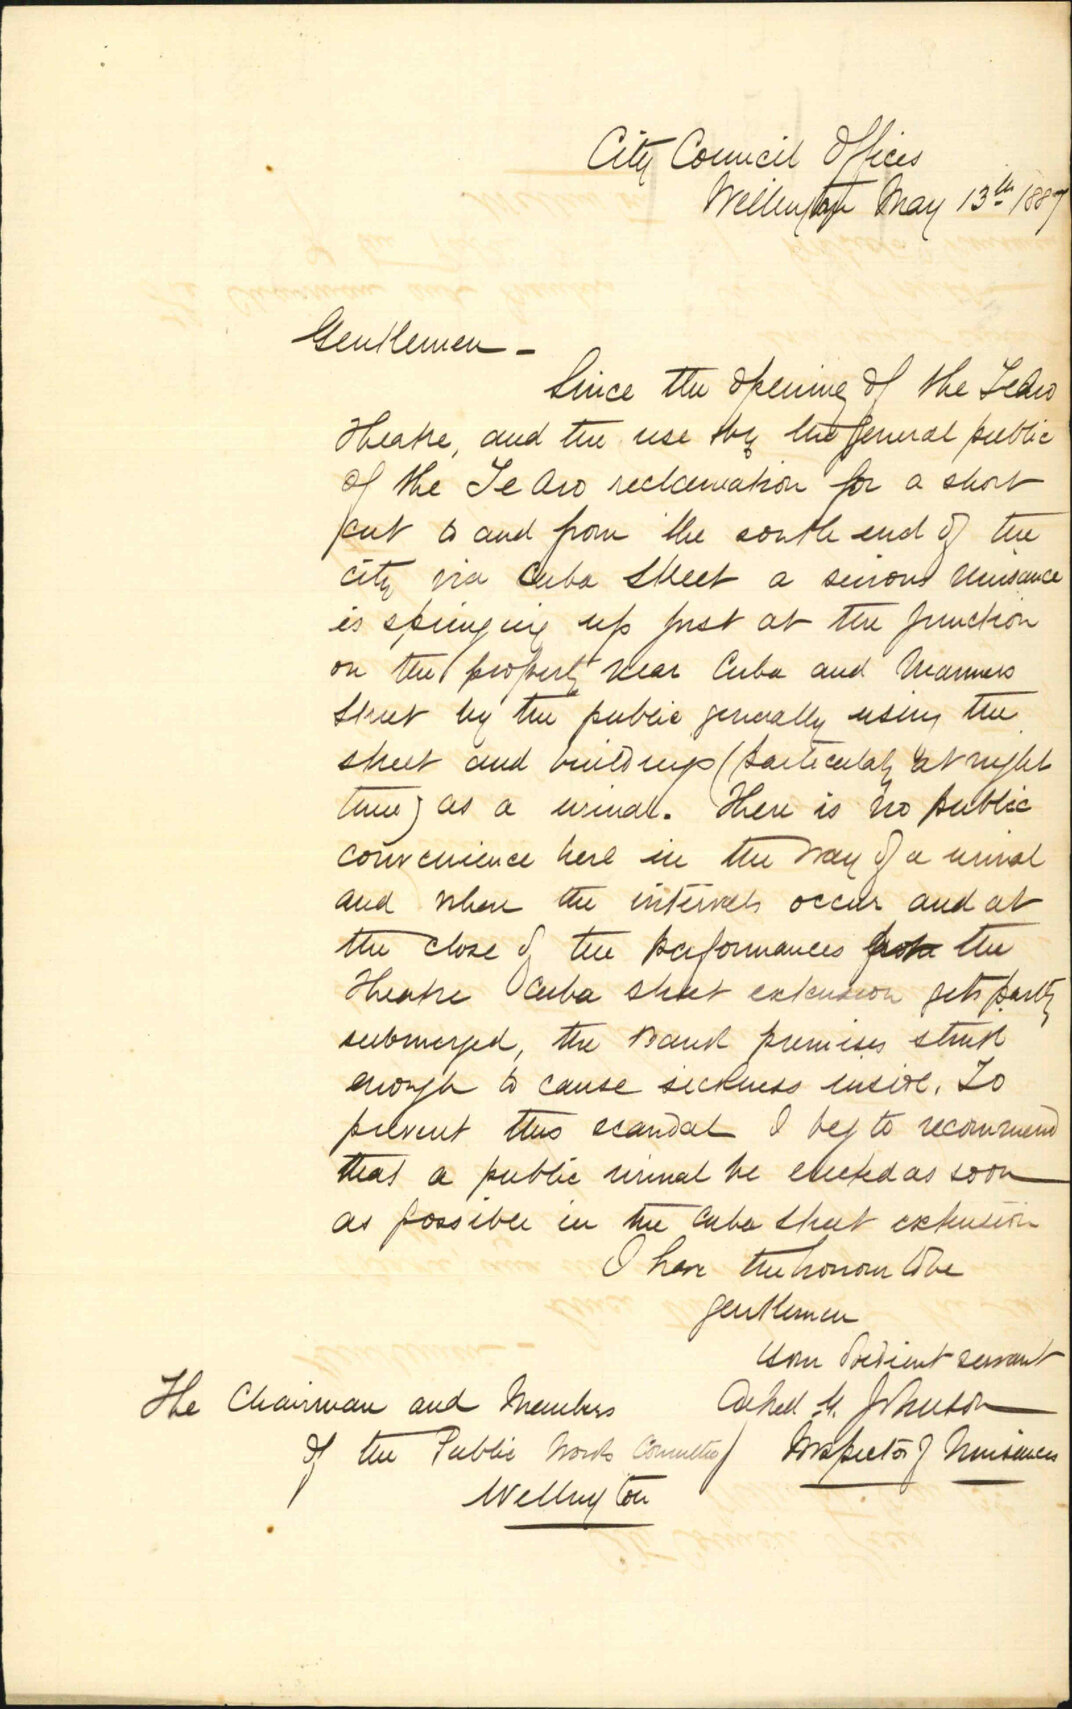 City Council Offices
Wellington May 13th 1887
Gentlemen -
Since the opening of the Te Aro
Theatre, and the use by the general public
of the Te Aro reclamation for a short
cut to and from the south end of the
city via Cuba Street a serious nuisance
is springing up just at the junction
on the property near Cuba and Manners
Street by the public generally using the
street and buildings (particularly at night
time) as a urinal. There is no public
convenience here in the way of a urinal
and when the intervals occur and at
the close of the performances the
Theatre Cuba street extension gets partly
submerged, the Bank premises stink
enough to cause sickness inside. To
prevent this scandal I beg to recommend
that a public urinal be erected as soon
as possible in the Cuba Street extension
I have the honour to be
gentlemen
your obedient servant
The Chairman and Members
Johnson
of the Public Works Committee
Inspector of Nuisances
Wellington